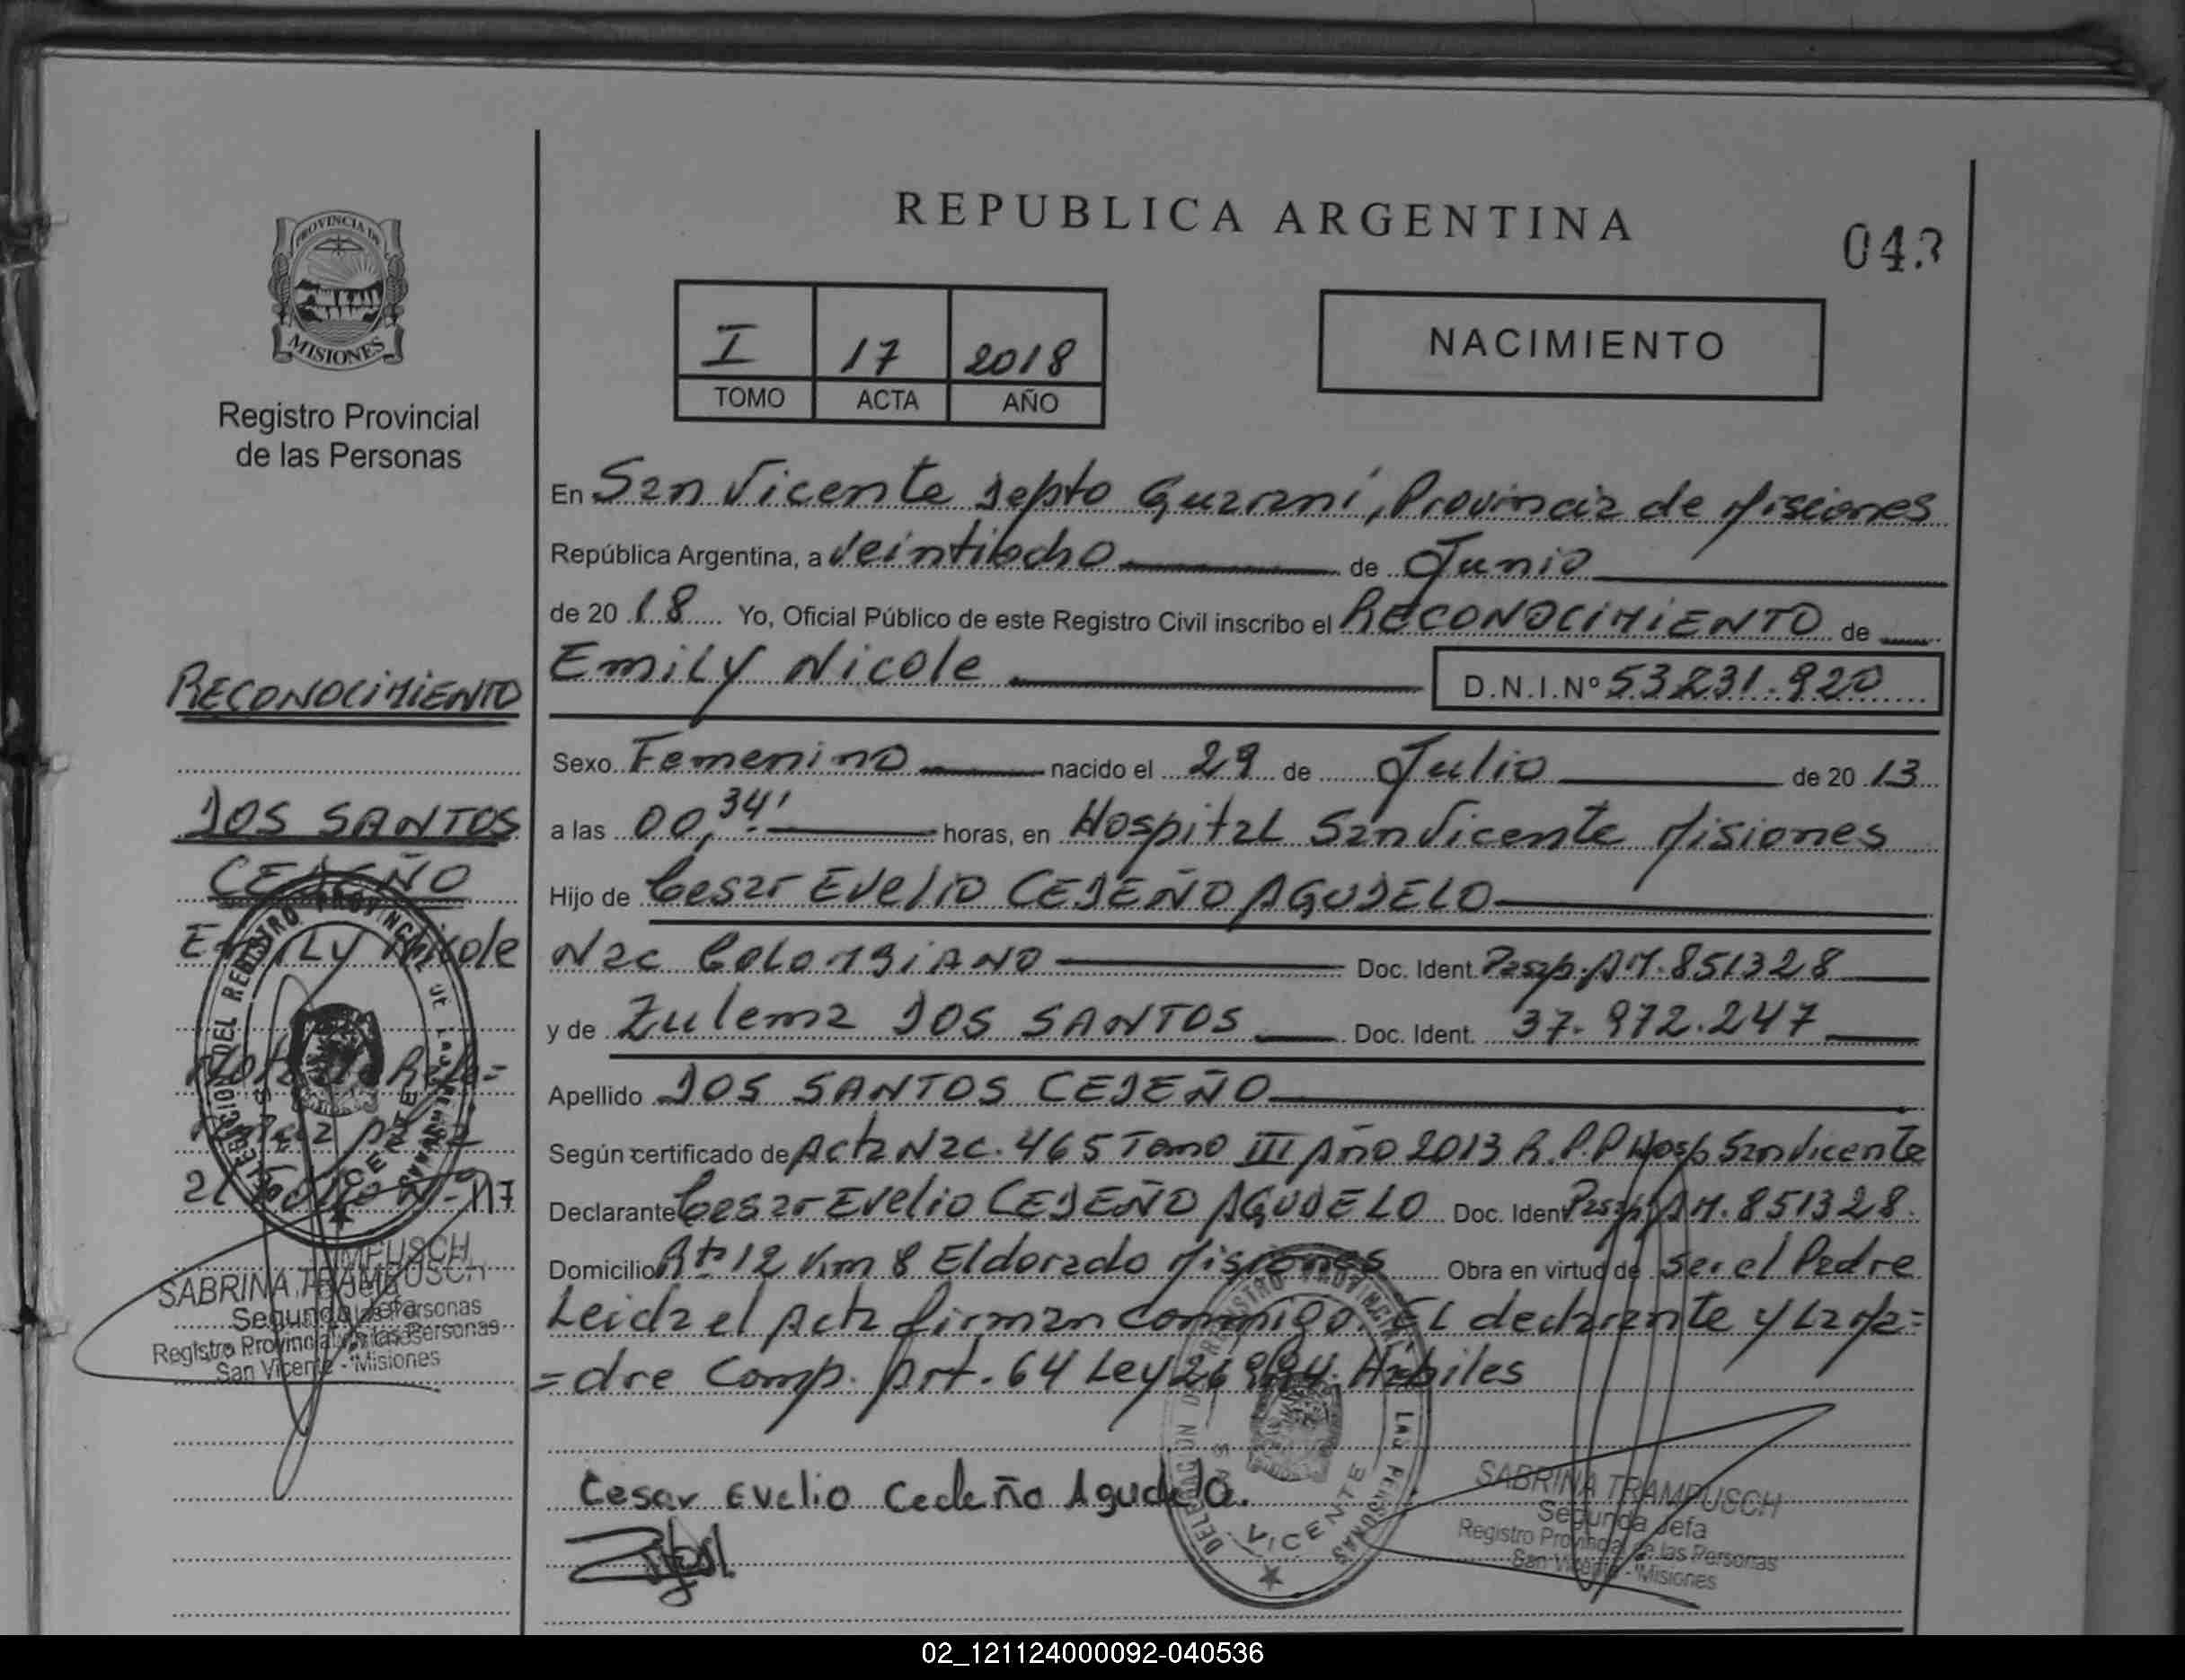 REPUBLICA ARGENTINA
043
PROVINCIA DE
MISIONES
Registro Provincial
de las Personas
I 17 2018
TOMO ACTA AÑO
NACIMIENTO
En San Vicente Depto Guaraní, Provincia de Misiones
República Argentina, a Veintiocho de Junio
de 2018 Yo, Oficial Público de este Registro Civil inscribo el RECONOCIMIENTO de
Emily Nicole D.N.I.Nº 53.231.920
Sexo Femenino nacido el 29 de Julio de 2013
a las 00,34' horas, en Hospital San Vicente Misiones
Hijo de Cesar Evelio CEDEÑO AGUDELO
Nac COLOMBIANO Doc. Ident. Pasap. AM.851328
y de Zulema DOS SANTOS Doc. Ident. 37.972.247
Apellido DOS SANTOS CEDEÑO
Según certificado de Acta Nac. 465 Tomo III Año 2013 R.P.P Hosp San Vicente
Declarante Cesar Evelio CEDEÑO AGUDELO Doc. Ident. Pasap AM.851328.
Domicilio Rta 12 Km 8 Eldorado Misiones Obra en virtud de Ser el Padre
Leida el Acta firman conmigo EL declarante y La Ma=
=dre Comp. Art. 64 Ley 26994. Habiles
Cesar Evelio Cedeño Agudelo.
SABRINA TRAMPUSCH
Segunda Jefa
Registro Provincial de las Personas
San Vicente - Misiones
RECONOCIMIENTO
DOS SANTOS
CEDEÑO
Emily Nicole
SABRINA TRAMPUSCH
Segunda Jefa
Registro Provincial de las Personas
San Vicente - Misiones
02_121124000092-040536